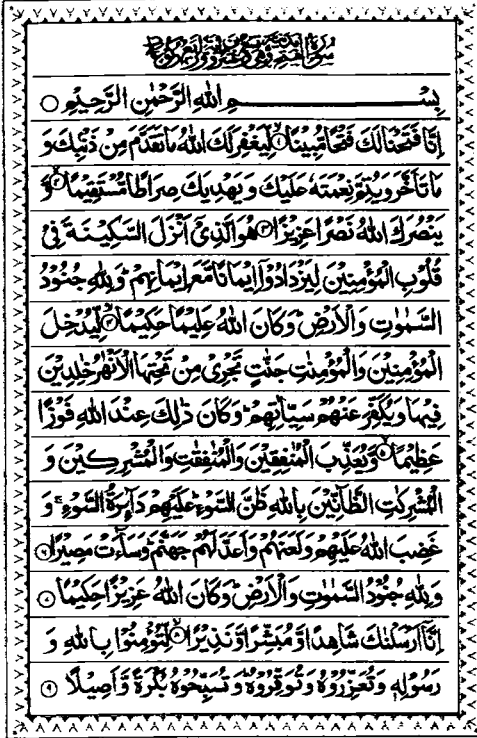 سُوْرَةُ الْفَتْحِ مَدَنِيَّةٌ
بِسْمِ اللهِ الرَّحْمٰنِ الرَّحِيْمِ ○
اِنَّا فَتَحْنَا لَكَ فَتْحًا مُّبِيْنًا ۙ﴿۱﴾ لِّيَغْفِرَ لَكَ اللهُ مَا تَقَدَّمَ مِنْ ذَنْۢبِكَ وَ
مَا تَاَخَّرَ وَيُتِمَّ نِعْمَتَهٗ عَلَيْكَ وَيَهْدِيَكَ صِرَاطًا مُّسْتَقِيْمًا ۙ﴿۲﴾ وَّ
يَنْصُرَكَ اللهُ نَصْرًا عَزِيْزًا ﴿۳﴾ هُوَ الَّذِيْٓ اَنْزَلَ السَّكِيْنَةَ فِيْ
قُلُوْبِ الْمُؤْمِنِيْنَ لِيَزْدَادُوْٓا اِيْمَانًا مَّعَ اِيْمَانِهِمْ ؕ وَلِلّٰهِ جُنُوْدُ
السَّمٰوٰتِ وَالْاَرْضِ ؕ وَكَانَ اللهُ عَلِيْمًا حَكِيْمًا ۙ﴿۴﴾ لِّيُدْخِلَ
الْمُؤْمِنِيْنَ وَالْمُؤْمِنٰتِ جَنّٰتٍ تَجْرِيْ مِنْ تَحْتِهَا الْاَنْهٰرُ خٰلِدِيْنَ
فِيْهَا وَيُكَفِّرَ عَنْهُمْ سَيِّاٰتِهِمْ ؕ وَكَانَ ذٰلِكَ عِنْدَ اللهِ فَوْزًا
عَظِيْمًا ۙ﴿۵﴾ وَّيُعَذِّبَ الْمُنٰفِقِيْنَ وَالْمُنٰفِقٰتِ وَالْمُشْرِكِيْنَ وَ
الْمُشْرِكٰتِ الظَّآنِّيْنَ بِاللهِ ظَنَّ السَّوْءِ ؕ عَلَيْهِمْ دَآئِرَةُ السَّوْءِ ۚ وَ
غَضِبَ اللهُ عَلَيْهِمْ وَلَعَنَهُمْ وَاَعَدَّ لَهُمْ جَهَنَّمَ ؕ وَسَآءَتْ مَصِيْرًا ﴿۶﴾
وَلِلّٰهِ جُنُوْدُ السَّمٰوٰتِ وَالْاَرْضِ ؕ وَكَانَ اللهُ عَزِيْزًا حَكِيْمًا ﴿۷﴾
اِنَّآ اَرْسَلْنٰكَ شَاهِدًا وَّمُبَشِّرًا وَّنَذِيْرًا ۙ﴿۸﴾ لِّتُؤْمِنُوْا بِاللهِ وَ
رَسُوْلِهٖ وَتُعَزِّرُوْهُ وَتُوَقِّرُوْهُ ؕ وَتُسَبِّحُوْهُ بُكْرَةً وَّاَصِيْلًا ﴿۹﴾